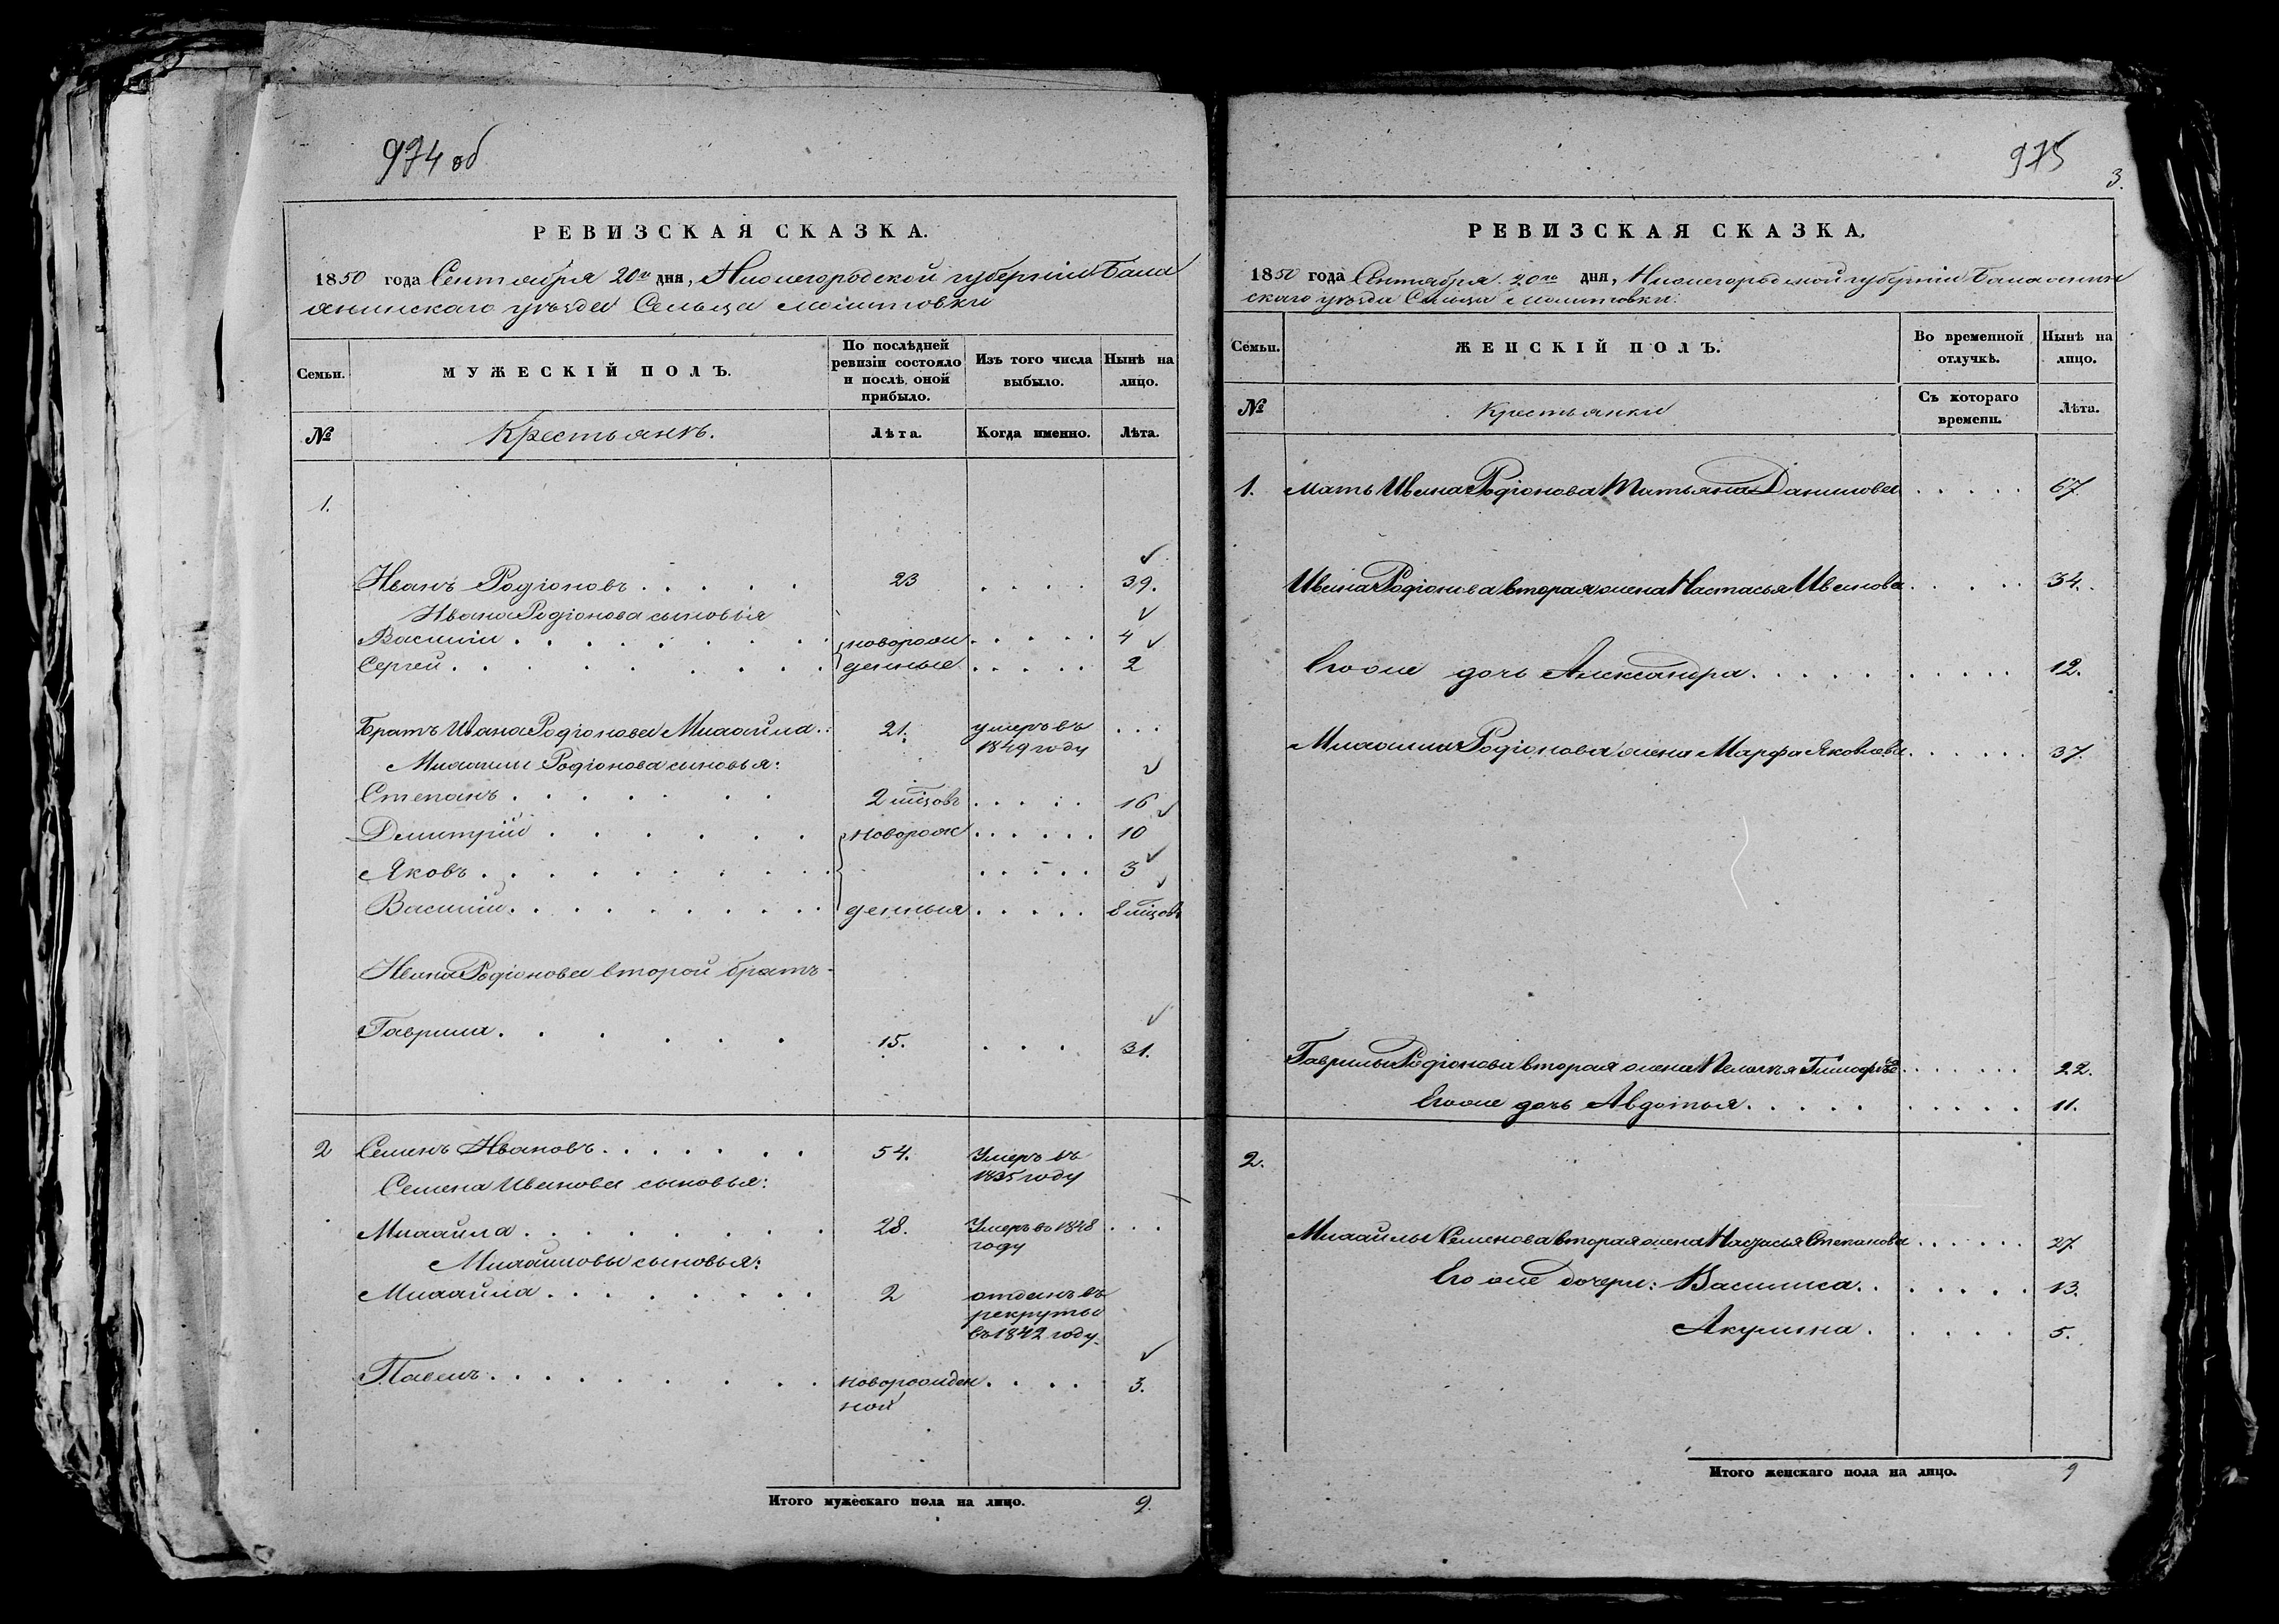 974 об
РЕВИЗСКАЯ СКАЗКА.
1850 года Сентября 20го дня, Нижегородской губерніи Бала
хнинскаго уѣзда Сельца
Семьи.
МУЖЕСКІЙ ПОЛЪ.
По послѣдней ревизіи состояло и послѣ оной прибыло.
Изъ того числа выбыло.
Нынѣ на лицо.
№
Крестьянъ.
Лѣта.
Когда именно.
Лѣта.
1.
Иванъ Родіоновъ . . . . . 23 . . . . 39.
Ивана Родіонова сыновья
Василій . . . . . . . . новорож . . . . . 4
Сергей . . . . . . . . денные . . . . . 2
Братъ Ивана Родіонова Михайла . : 21. умеръ въ . . .
1849 году
Михайлы Родіонова сыновья:
Степанъ . . . . . . 2 мцовъ . . . . . 16
Дмитрій . . . . . . новорож . . . . . . 10
Яковъ . . . . . . . . . . . . . . 3
Василій . . . . . . . . денныя . . . . . 8 мцовъ
Ивана Родіонова второй братъ
Гаврила . . . . . . 15. . . . 31.
2 Семенъ Ивановъ . . . . . . 54. Умеръ въ
1835 году
Семена Иванова сыновья:
Михайла . . . . . . . . 28. Умеръ въ 1848 . . .
году
Михайловы сыновья:
Михайла . . . . . . . 2 отданъ въ
рекруты
въ 1842 году.
Павелъ . . . . . . . . новорожден . . . . 3.
ной
Итого мужескаго пола на лицо. 9.
975
3.
РЕВИЗСКАЯ СКАЗКА.
1850 года Сентября 20го дня, Нижегородской губерніи Балахнин
скаго уѣзда Сельца
Семьи.
ЖЕНСКІЙ ПОЛЪ.
Во временной отлучкѣ.
Нынѣ на лицо.
№
Крестьянки
Съ котораго времени.
Лѣта.
1. Мать Ивана Родіонова Татьяна Данилова . . . . . 67.
Ивана Родіонова вторая жена Настасья Иванова . . . . . 34.
Его же дочь Александра . . . . . . . . . . 12.
Михайлы Родіонова жена Марфа Яковлева . . . . . . 37.
Гаврилы Родіонова вторая жена Пелагѣя Тимофѣева . . . . . . 22.
Его же дочь Авдотья . . . . . . . . . . 11.
2.
Михайлы Семенова вторая жена Настасья Степанова . . . . . . 27.
Его же дочери: Василиса . . . . . . . 13.
Акулина . . . . . 5.
Итого женскаго пола на лицо. 9